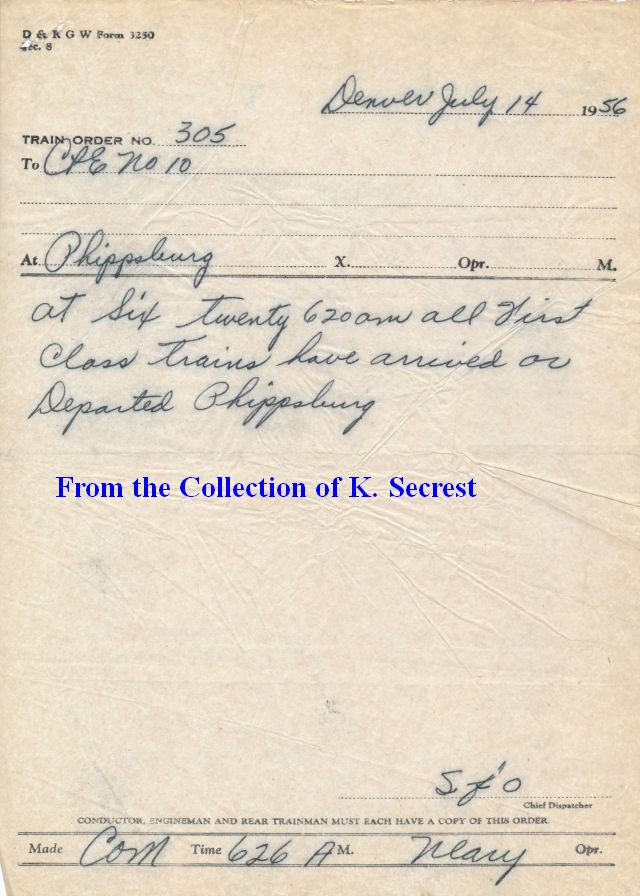 D & R G W Form 3250
Sec. 8
Denver July 14 1956
TRAIN ORDER NO. 305
To C&E No 10
At Phippsburg X. Opr. M.
at Six twenty 620am all First
Class trains have arrived or
Departed Phippsburg
From the Collection of K. Secrest
Chief Dispatcher
CONDUCTOR, ENGINEMAN AND REAR TRAINMAN MUST EACH HAVE A COPY OF THIS ORDER.
Made Com Time 626 A M. Neary Opr.